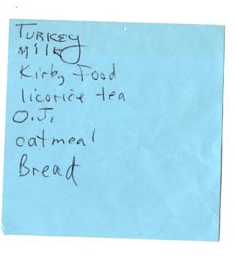 TURKEY
Milk
Kirby Food
licorice tea
O.J.
oatmeal
Bread